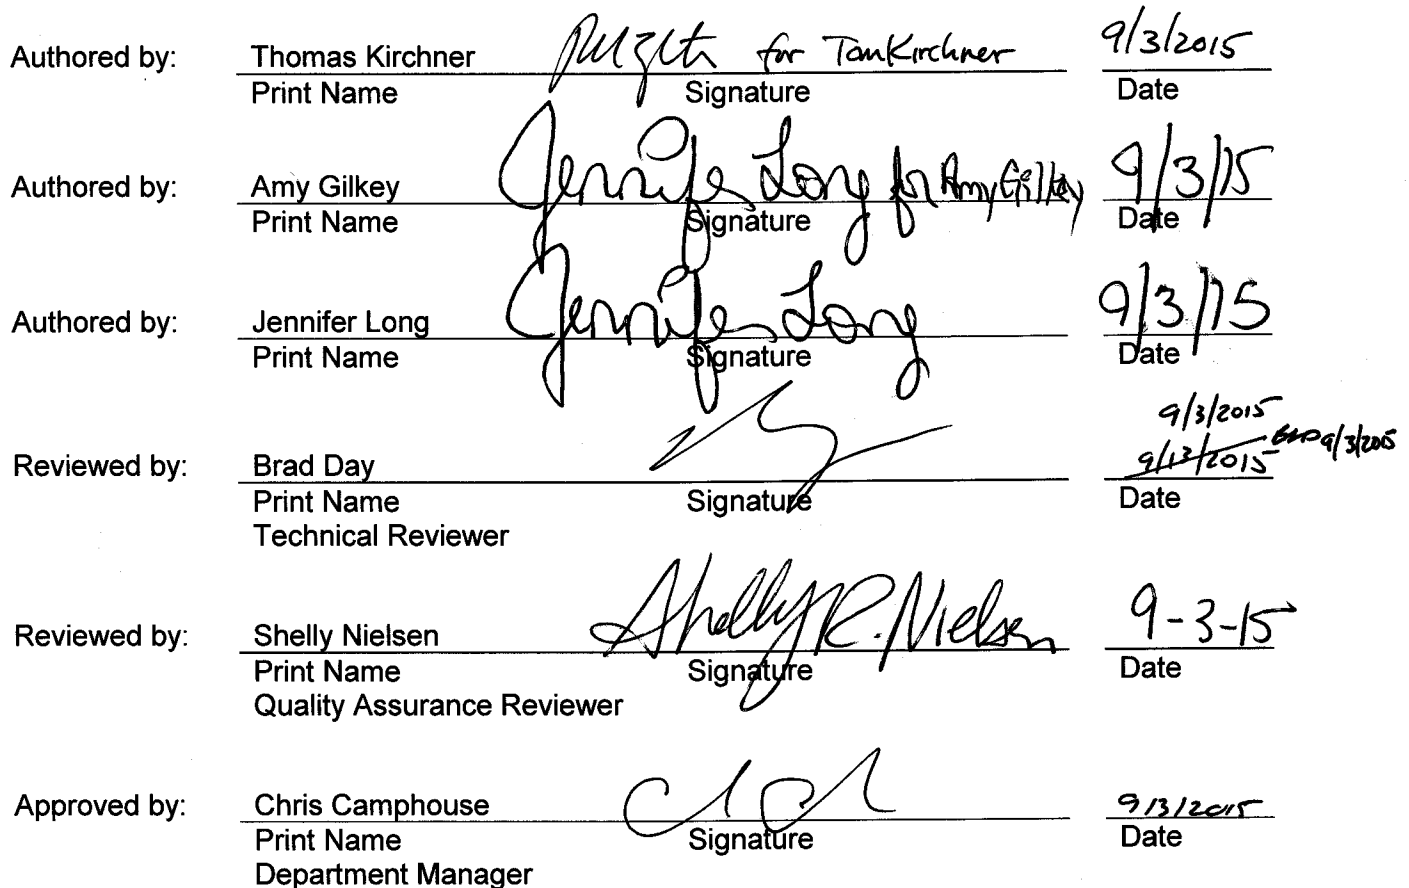 Authored by: Thomas Kirchner for Tom Kirchner 9/3/2015
Print Name Signature Date
Authored by: Amy Gilkey Jennifer Long for Amy Gilkey 9/3/15
Print Name Signature Date
Authored by: Jennifer Long Jennifer Long 9/3/15
Print Name Signature Date
9/3/2015
Reviewed by: Brad Day 9/13/2015 9/3/2015
Print Name Signature Date
Technical Reviewer
Reviewed by: Shelly Nielsen Shelly R. Nielsen 9-3-15
Print Name Signature Date
Quality Assurance Reviewer
Approved by: Chris Camphouse 9/3/2015
Print Name Signature Date
Department Manager